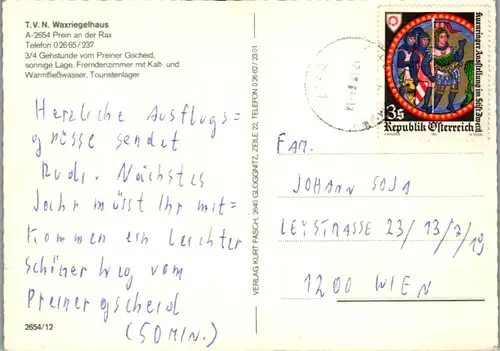 T.V.N. Waxriegelhaus
A-2654 Prein an der Rax
Telefon 0 26 65 / 237
3/4 Gehstunde vom Preiner Gscheid,
sonnige Lage, Fremdenzimmer mit Kalt- und
Warmfließwasser, Touristenlager
Herzliche Ausflugs=
grüsse sendet
Rudi. Nächstes
Jahr müsst Ihr mit=
kommen ein leichter
schöner Weg vom
Preinergscheid
(50 MIN.)
2654/12
VERLAG KURT FASCH, 2640 GLOGGNITZ, ZEILE 22, TELEFON 0 26 62 / 23 01
Kuenringer Ausstellung im Stift Zwettl
3S
Republik Österreich
FAM.
JOHANN SOJA
LEYSTRASSE 23/13/3/19
1200 WIEN